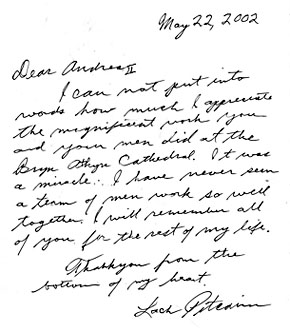 May 22, 2002
Dear Andreas II
I can not put into
words how much I appreciate
the magnificent work you
and your men did at the
Bryn Athyn Cathedral. It was
a miracle. I have never seen
a team of men work so well
together. I will remember all
of you for the rest of my life.
Thankyou from the
bottom of my heart.
Lach Pitcairn